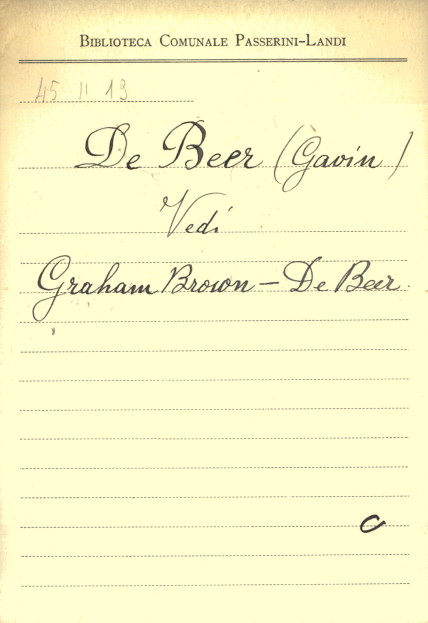 BIBLIOTECA COMUNALE PASSERINI-LANDI
45 11 13
De Beer (Gavin)
Vedi
Graham Brown - De Beer
C